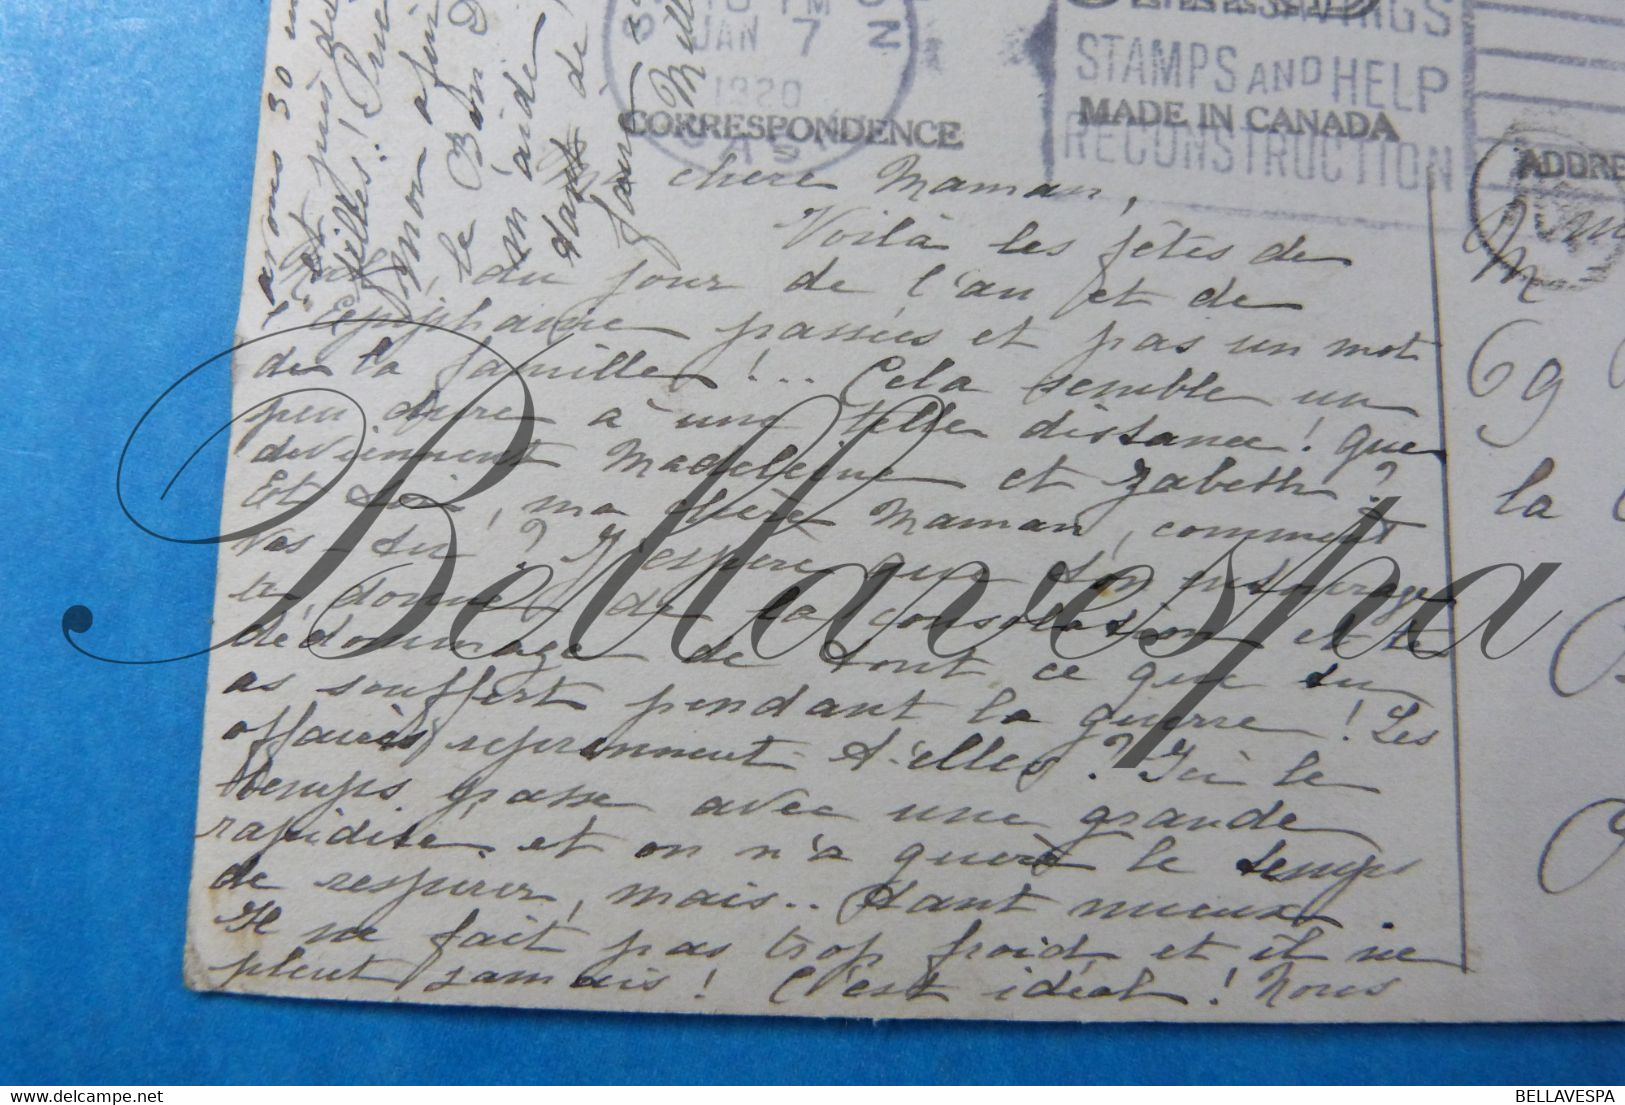 10 PM
JAN 7
1920
SASK
SAVINGS
STAMPS AND HELP
RECONSTRUCTION
CORRESPONDENCE
MADE IN CANADA
ADDRE
Ma chere Maman,
Voilà les fêtes de
Noël, du jour de l'an et de
l'Epiphanie passées et pas un mot
de la famille!... Cela semble un
peu dure à une telle distance! Que
deviennent Madeleine et Zabeth?
Et toi, ma chère Maman, comment
vas-tu? J'espère que ton
te donne de la consolation et te
dédommage de tout ce que tu
as souffert pendant la guerre! Les
affaires reprennent t'elles? Ici le
temps passe avec une grande
rapidité, et on n'a guère le temps
de respirer, mais.. tant mieux.
Il ne fait pas trop froid, et il ne
pleut jamais! C'est idéal! Nous
avons 30
filles!
mon
le Bon
m'aide
69
la
Bellavespa
BELLAVESPA